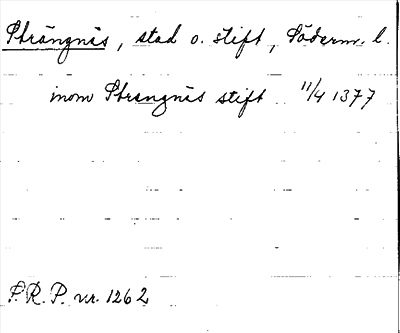 Strängnäs, stad o. stift, Söderm. l.
inom Strengnäs stift 11/4 1377
P.R.P. nr. 1262